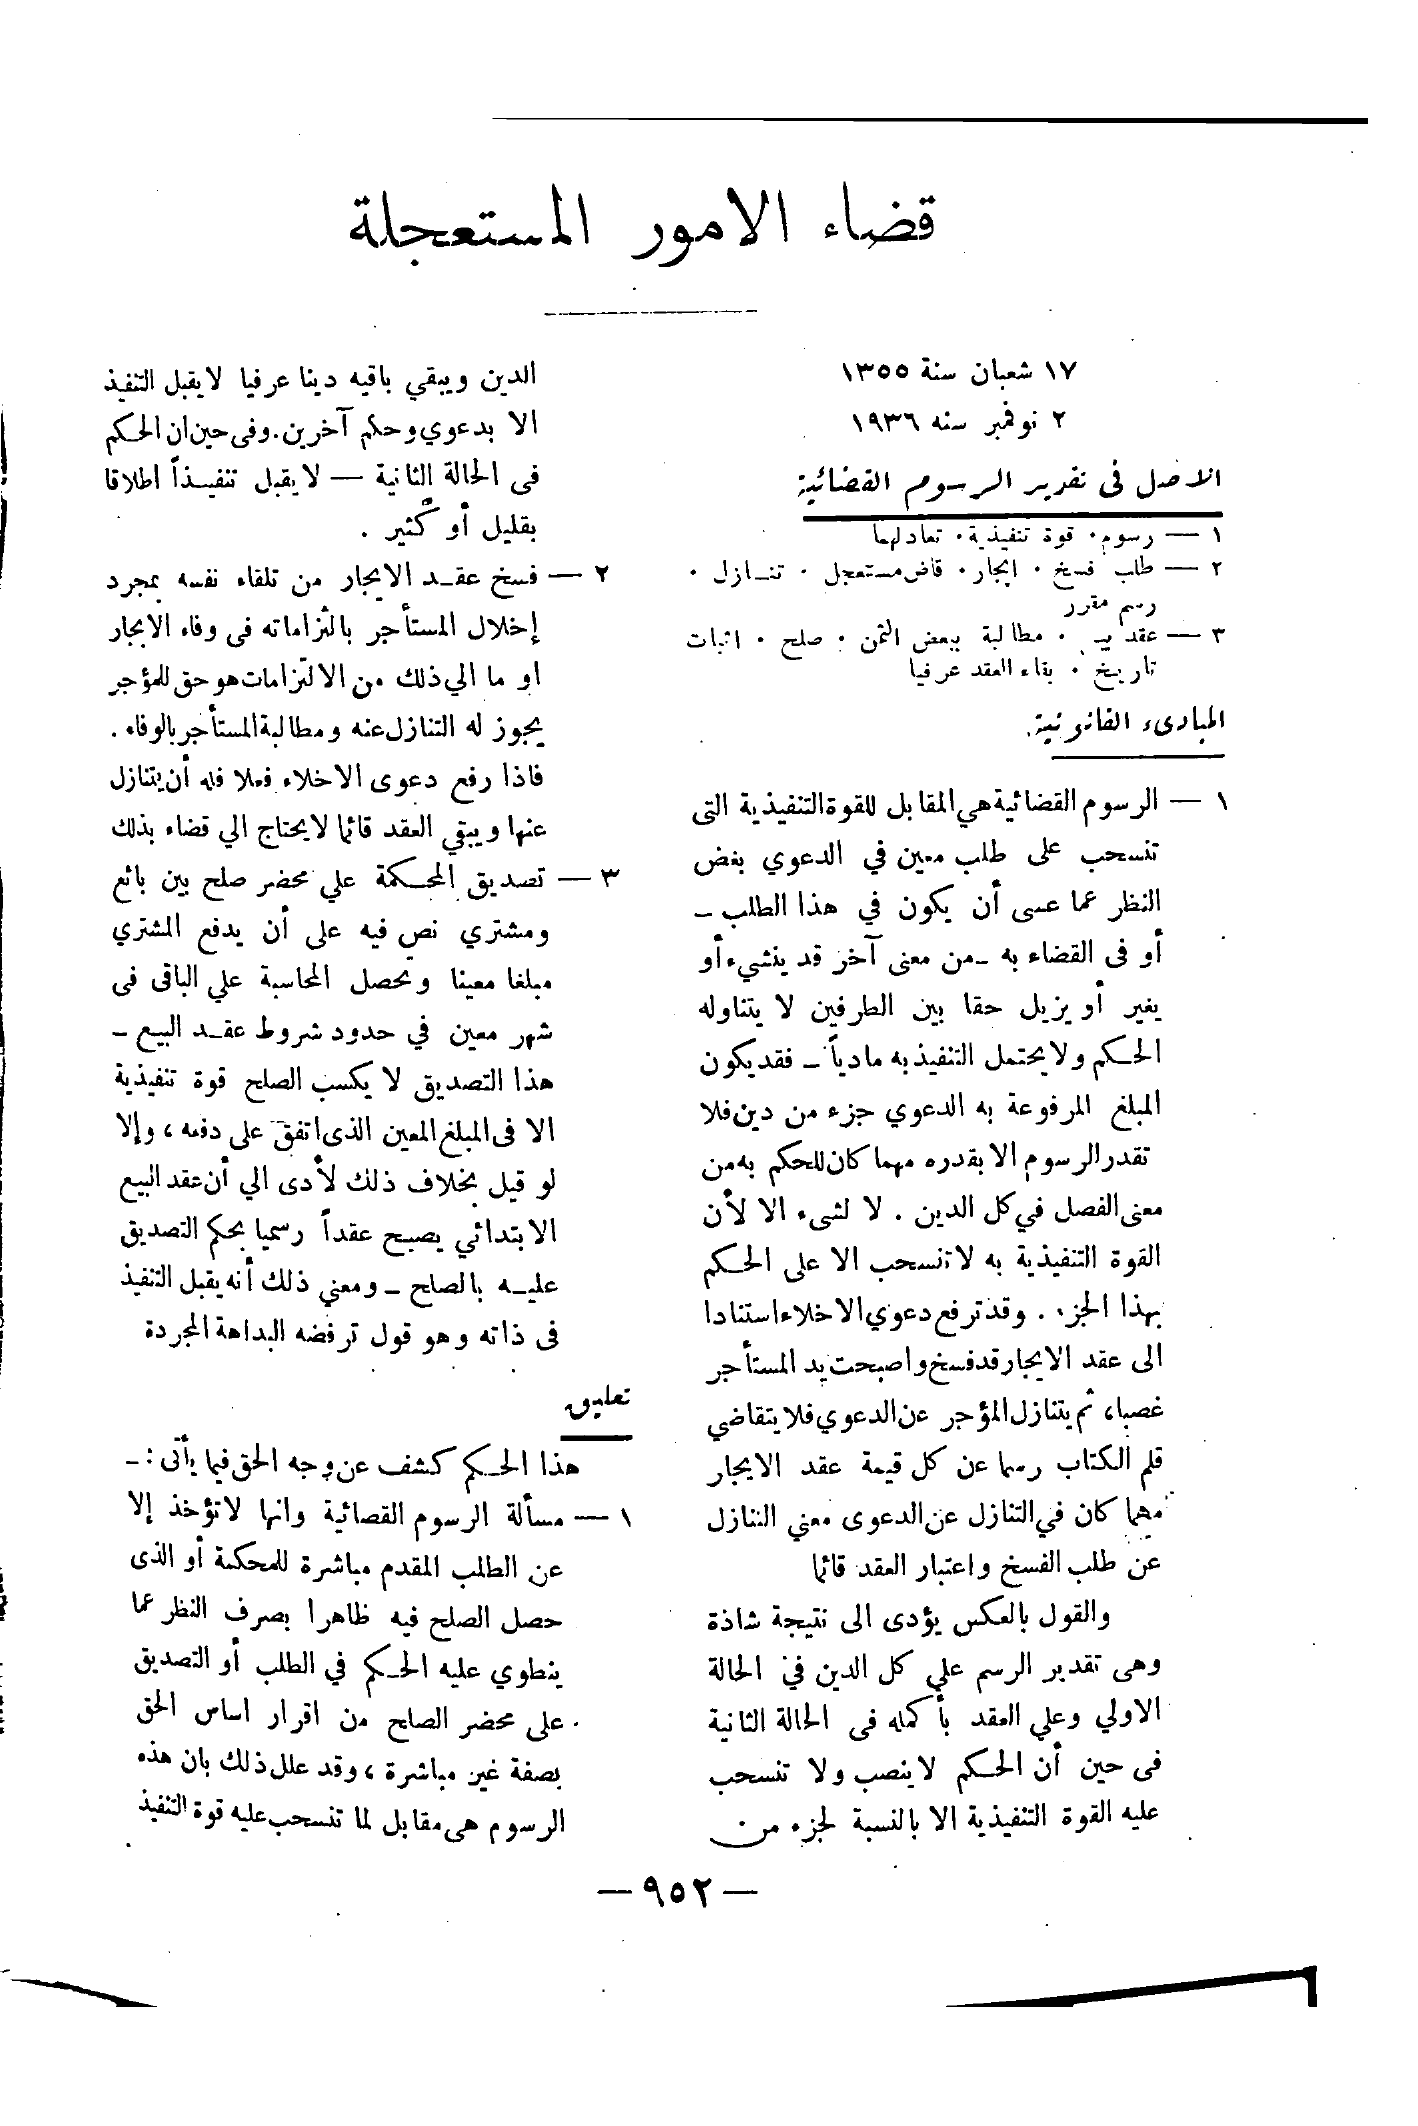 قضاء الامور المستعجلة
١٧ شعبان سنة ١٣٥٥
٢ نوفمبر سنه ١٩٣٦
الاصل فى تقدير الرسوم القضائية
١ — رسوم . قوة تنفيذية . تعادلهما
٢ — طلب فسخ . ايجار . قاض مستعجل . تنازل .
رسم مقرر
٣ — عقد بيع . مطالبة ببعض الثمن . صلح . اثبات
تاريخ . بقاء العقد عرفيا
المبادىء القانونية.
١ — الرسوم القضائية هي المقابل للقوة التنفيذية التى
تنسحب على طلب معين في الدعوي بغض
النظر عما عسى أن يكون في هذا الطلب –
أو فى القضاء به – من معنى آخر قد ينشيء أو
يغير أو يزيل حقا بين الطرفين لا يتناوله
الحكم ولا يحتمل التنفيذ به مادياً – فقد يكون
المبلغ المرفوعة به الدعوي جزء من دين فلا
تقدر الرسوم الا بقدره مهما كان للحكم به من
معنى الفصل في كل الدين . لا لشىء الا لأن
القوة التنفيذية به لا تنسحب الا على الحكم
بهذا الجزء . وقد ترفع دعوي الاخلاء استنادا
الى عقد الايجار قد فسخ واصبحت يد المستأجر
غصبا، ثم يتنازل المؤجر عن الدعوي فلا يتقاضي
قلم الكتاب رسما عن كل قيمة عقد الايجار
مهما كان في التنازل عن الدعوى معني التنازل
عن طلب الفسخ واعتبار العقد قائما
والقول بالعكس يؤدى الى نتيجة شاذة
وهى تقدير الرسم علي كل الدين في الحالة
الاولي وعلي العقد بأكمله فى الحالة الثانية
فى حين أن الحكم لا ينصب ولا تنسحب
عليه القوة التنفيذية الا بالنسبة لجزء من
الدين ويبقي باقيه دينا عرفيا لا يقبل التنفيذ
الا بدعوي وحكم آخرين. وفى حين ان الحكم
فى الحالة الثانية — لا يقبل تنفيذاً اطلاقا
بقليل أو كثير .
٢ — فسخ عقد الايجار من تلقاء نفسه بمجرد
إخلال المستأجر بالتزاماته فى وفاء الايجار
او ما الي ذلك من الالتزامات هو حق للمؤجر
يجوز له التنازل عنه ومطالبة المستأجر بالوفاء .
فاذا رفع دعوى الاخلاء فعلا فله أن يتنازل
عنها ويبقي العقد قائما لا يحتاج الي قضاء بذلك
٣ — تصديق المحكمة علي محضر صلح بين بائع
ومشتري نص فيه على أن يدفع المشتري
مبلغا معينا وتحصل المحاسبة علي الباقى فى
شهر معين في حدود شروط عقد البيع –
هذا التصديق لا يكسب الصلح قوة تنفيذية
الا فى المبلغ المعين الذى اتفق على دفعه ، وإلا
لو قيل بخلاف ذلك لأدى الي أن عقد البيع
الابتدائي يصبح عقداً رسميا بحكم التصديق
عليه بالصلح – ومعني ذلك أنه يقبل التنفيذ
فى ذاته وهو قول ترفضه البداهة المجردة
تعليق
هذا الحكم كشف عن وجه الحق فيما يأتى :–
١ — مسألة الرسوم القصائية وانها لا تؤخذ إلا
عن الطلب المقدم مباشرة للمحكمة أو الذى
حصل الصلح فيه ظاهرا بصرف النظر عما
ينطوي عليه الحكم في الطلب أو التصديق
على محضر الصلح من اقرار اساس الحق
بصفة غير مباشرة ، وقد علل ذلك بان هذه
الرسوم هى مقابل لما تنسحب عليه قوة التنفيذ
— ٩٥٢ —